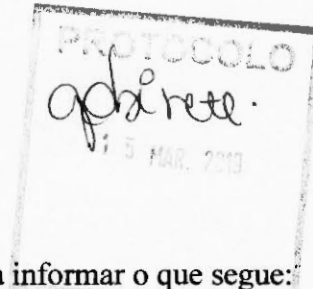 PROTOCOLO
gabinete.
15 MAR. 2019
informar o que segue: